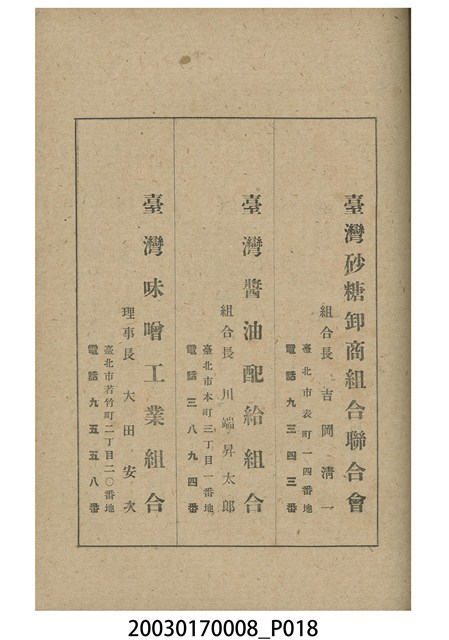 臺灣砂糖卸商組合聯合會
組合長 吉岡清一
臺北市表町一四番地
電話九三四三番
臺灣醬油配給組合
組合長 川端昇太郎
臺北市本町三丁目一番地
電話三八九四番
臺灣味噌工業組合
理事長 大田安次
臺北市若竹町二丁目二〇番地
電話九五五八番
20030170008_P018